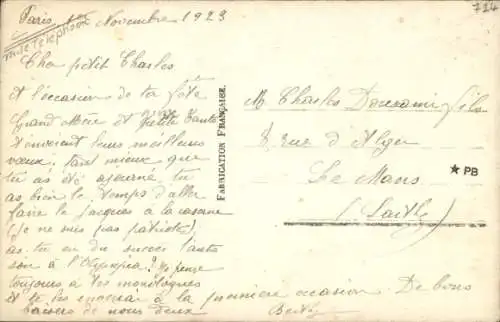 Paris, 1er Novembre 1923
714
Mlle Telephoon
Cher petit Charles
et l'occasion de ta fête
Grand Mère et Petite Tante
t'envoient leurs meilleurs
vœux. tant mieux que
tu as été ajourné tu
as bien le temps d'aller
faire le Jacques à la caserne
(Je ne suis pas patriote)
as-tu eu du succès l'autre
soir à l'Olympia? je pense
toujours à tes monologues
et je les à la première occasion. De bons
baisers de nous deux
FABRICATION FRANÇAISE.
M. Charles fils
8 rue d'Alger
Le Mans
(Sarthe)
★ PB